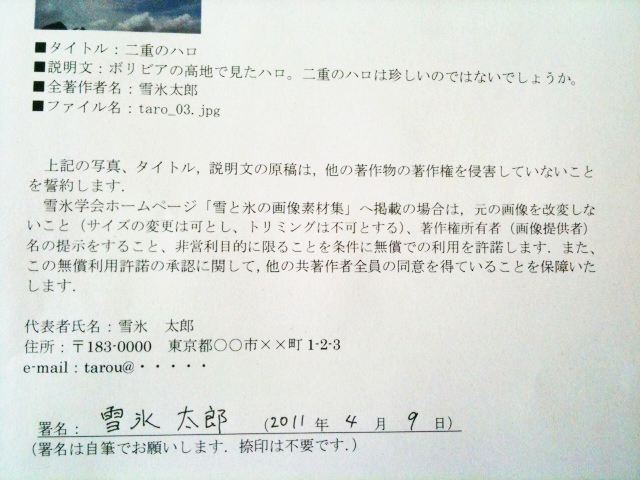 ■タイトル：二重のハロ
■説明文：ボリビアの高地で見たハロ。二重のハロは珍しいのではないでしょうか。
■全著作者名：雪氷太郎
■ファイル名：taro_03.jpg
上記の写真、タイトル，説明文の原稿は，他の著作物の著作権を侵害していないこと
を誓約します．
雪氷学会ホームページ「雪と氷の画像素材集」へ掲載の場合は，元の画像を改変しな
いこと（サイズの変更は可とし、トリミングは不可とする）、著作権所有者（画像提供者）
名の提示をすること、非営利目的に限ることを条件に無償での利用を許諾します．また、
この無償利用許諾の承認に関して，他の共著作者全員の同意を得ていることを保障いた
します．
代表者氏名：雪氷　太郎
住所：〒183-0000　東京都〇〇市××町 1-2-3
e-mail：tarou@・・・・・
署名：　雪氷 太郎　（2011 年 4 月 9 日）
（署名は自筆でお願いします．捺印は不要です．）